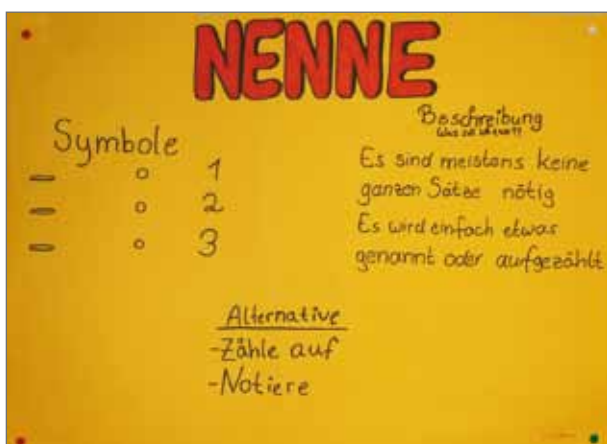 NENNE
Symbole
– ○ 1
– ○ 2
– ○ 3
Beschreibung
Was ist zu tun?
Es sind meistens keine
ganzen Sätze nötig
Es wird einfach etwas
genannt oder aufgezählt
Alternative
-Zähle auf
-Notiere